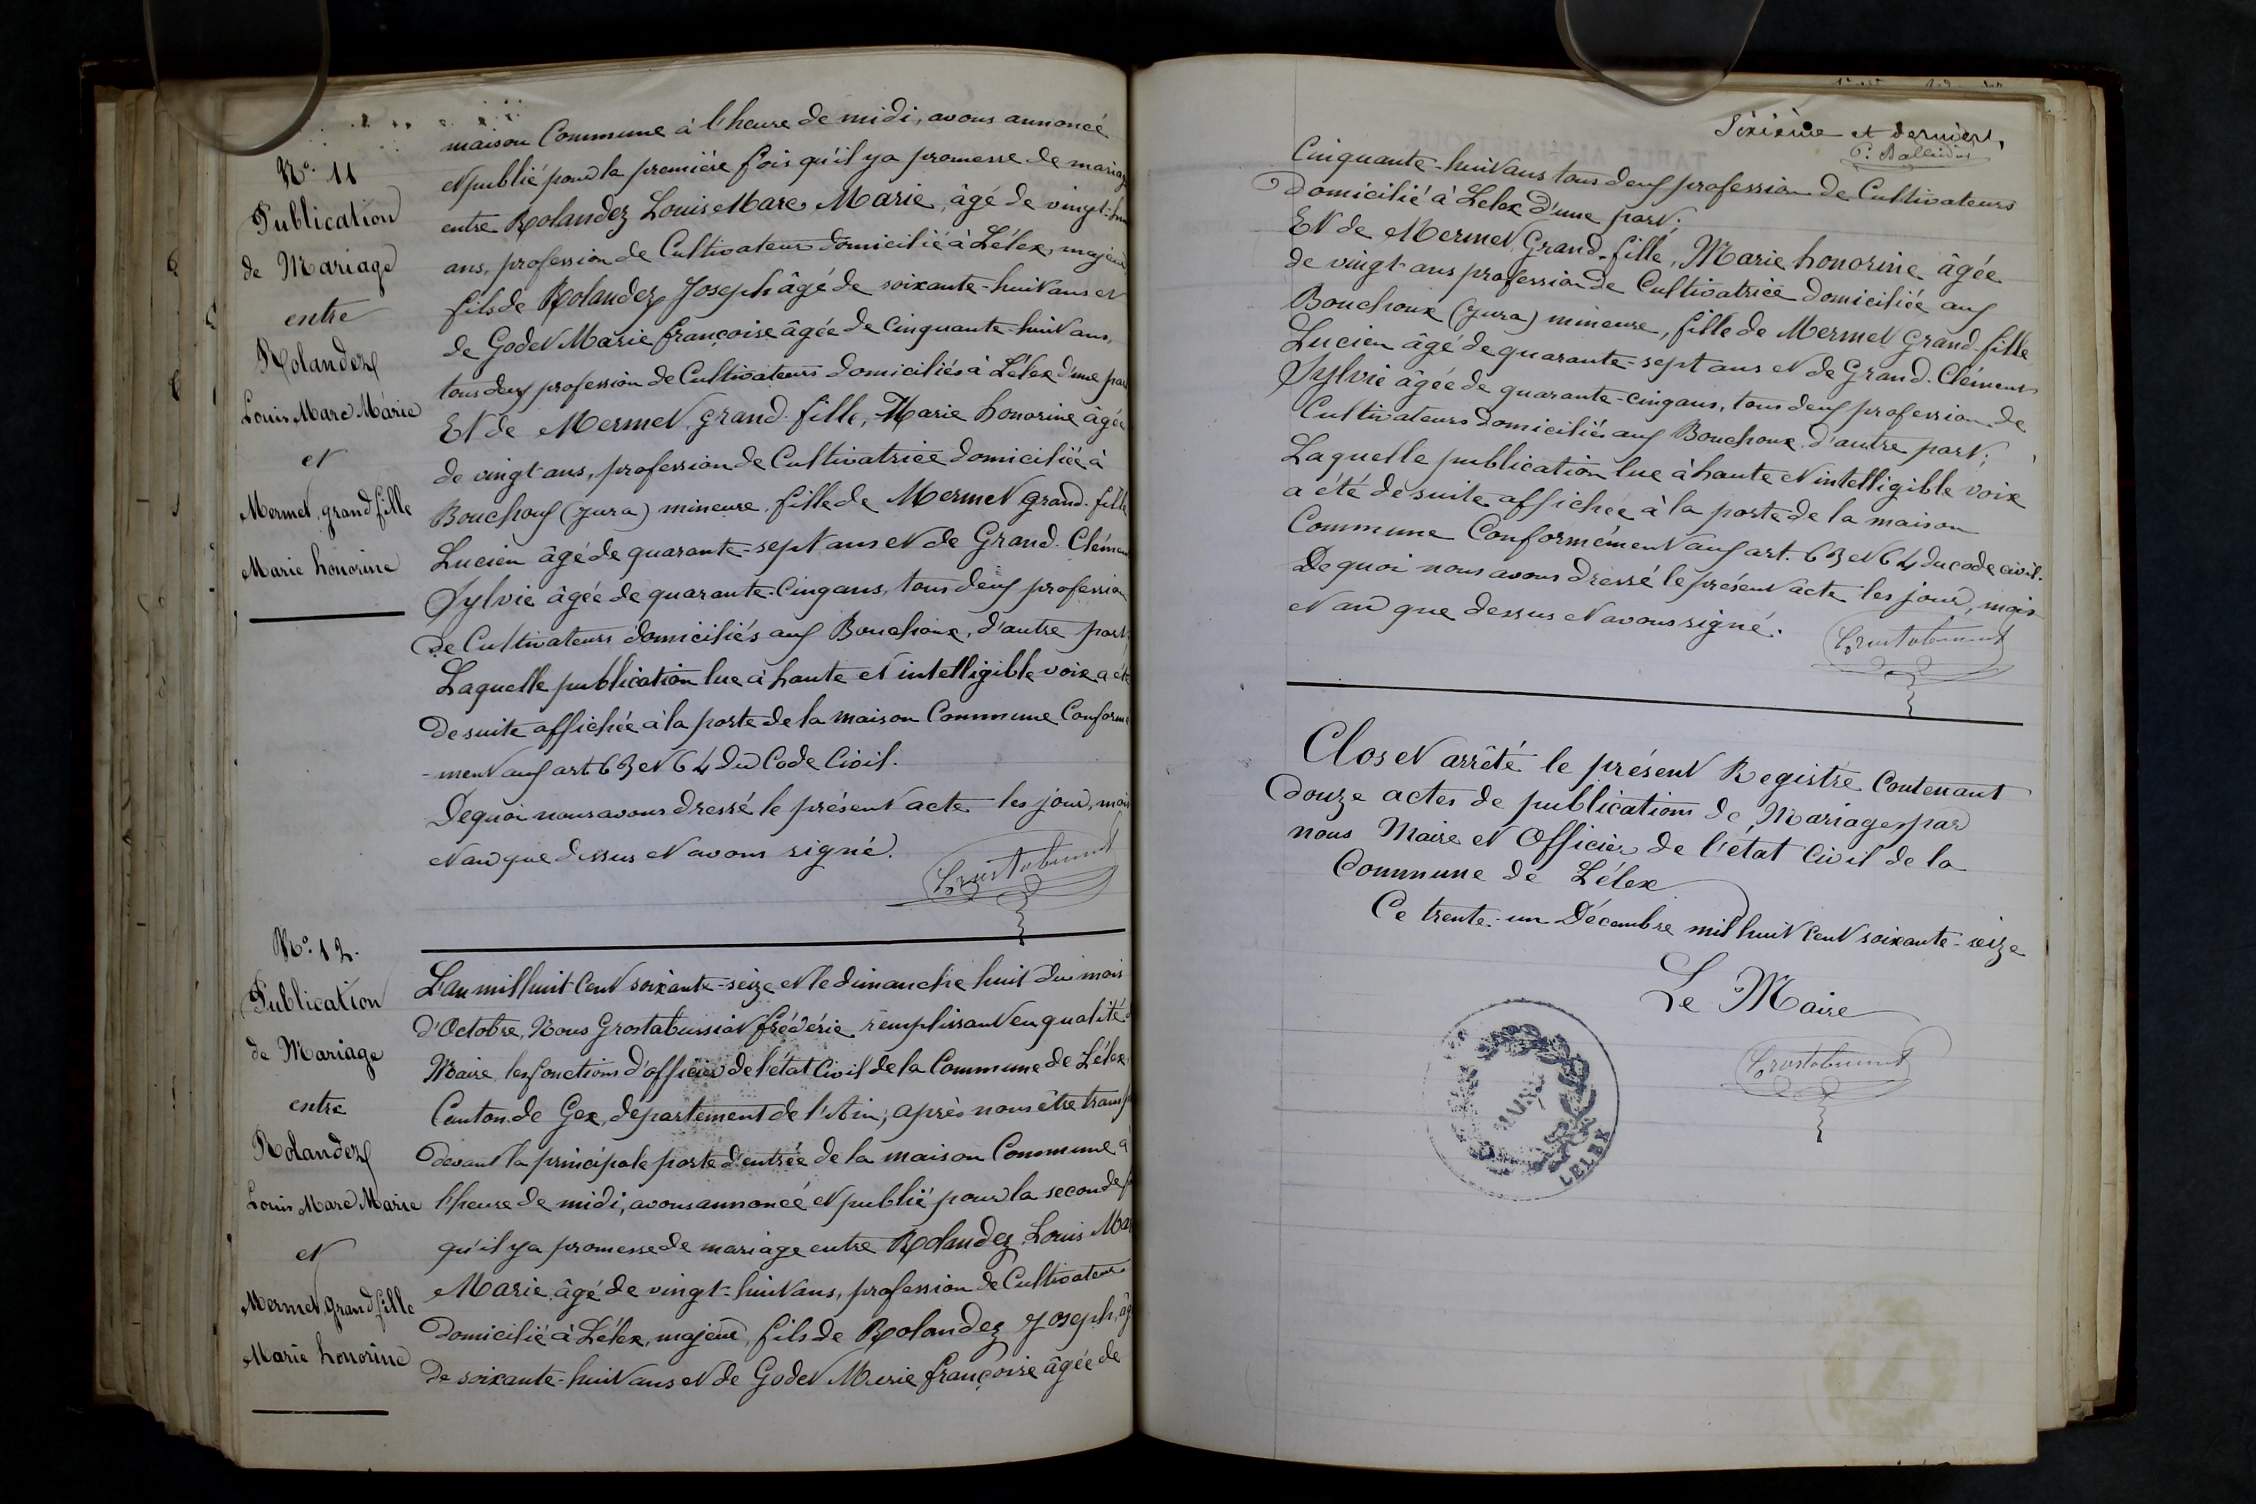 maison Commune à l'heure de midi, avons annoncé
N° 11
et publié pour la première fois qu'il y a promesse de mariage
Publication
entre Rolandez Louis Marc Marie, âgé de vingt-huit
de Mariage
ans, profession de Cultivateur domicilié à Lélex, majeur
entre
fils de Rolandez Joseph âgé de soixante-huit ans et
Rolandez
de Godet Marie françoise âgée de Cinquante-huit ans,
Louis Marc Marie
tous deux profession de Cultivateurs domiciliés à Lélex d'une part
et
Et de Mermet, grand-fille, Marie honorine âgée
Mermet, grand fille
de vingt ans, profession de Cultivatrice domiciliée à
Marie honorine
Bouchoux (Jura) mineure, fille de Mermet grand-fille
Lucien âgé de quarante-sept ans et de Grand-Clément
Sylvie âgée de quarante-Cinq ans, tous deux profession
de Cultivateurs domiciliés aux Bouchoux, d'autre part;
Laquelle publication lue à haute et intelligible voix a été
de suite affichée à la porte de la maison Commune Conformé
-ment aux art 63 et 64 du Code Civil.
De quoi nous avons dressé le présent acte les jour, mois
et an que dessus et avons signé.
N° 12.
Publication
de Mariage
entre
Rolandez
Louis Marc Marie
et
Mermet, Grand fille
Marie honorine
L'an mil huit Cent soixante-seize et le dimanche huit du mois
d'Octobre, Nous Grostabussiat frédéric remplissant en qualité de
Maire, les fonctions d'officier de l'état Civil de la Commune de Lélex
Canton de Gex, département de l'Ain; après nous être transp
devant la principale porte d'entrée de la maison Commune à
l'heure de midi, avons annoncé et publié pour la seconde f
qu'il y a promesse de mariage entre Rolandez Louis Mar
Marie âgé de vingt-huit ans, profession de Cultivateur
domicilié à Lélex, majeur, fils de Rolandez Joseph, âg
de soixante-huit ans et de Godet Marie françoise âgée de
Sixième et dernier,
Cinquante-huit ans tous deux profession de Cultivateurs
domicilié à Lélex d'une part;
Et de Mermet, Grand-fille, Marie honorine âgée
de vingt-ans profession de Cultivatrice domiciliée aux
Bouchoux (Jura) mineure, fille de Mermet Grand fille
Lucien âgé de quarante-sept ans et de Grand-Clément
Sylvie âgée de quarante-cinq ans, tous deux profession de
Cultivateurs domiciliés aux Bouchoux d'autre part;
Laquelle publication lue à haute et intelligible voix
a été de suite affichée à la porte de la maison
Commune Conformément aux art. 63 et 64 du code civil.
De quoi nous avons dressé le présent acte les jour, mois
et an que dessus et avons signé.
Clos et arrêté le présent Registre Contenant
douze actes de publications de Mariages par
nous Maire et Officier de l'état Civil de la
Commune de Lélex
Ce trente-un Décembre mil huit Cent soixante-seize
Le Maire
MAIRIE
LELEX